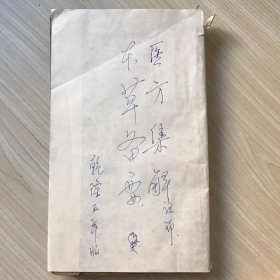 医方集解
本草备要
乾隆五年版